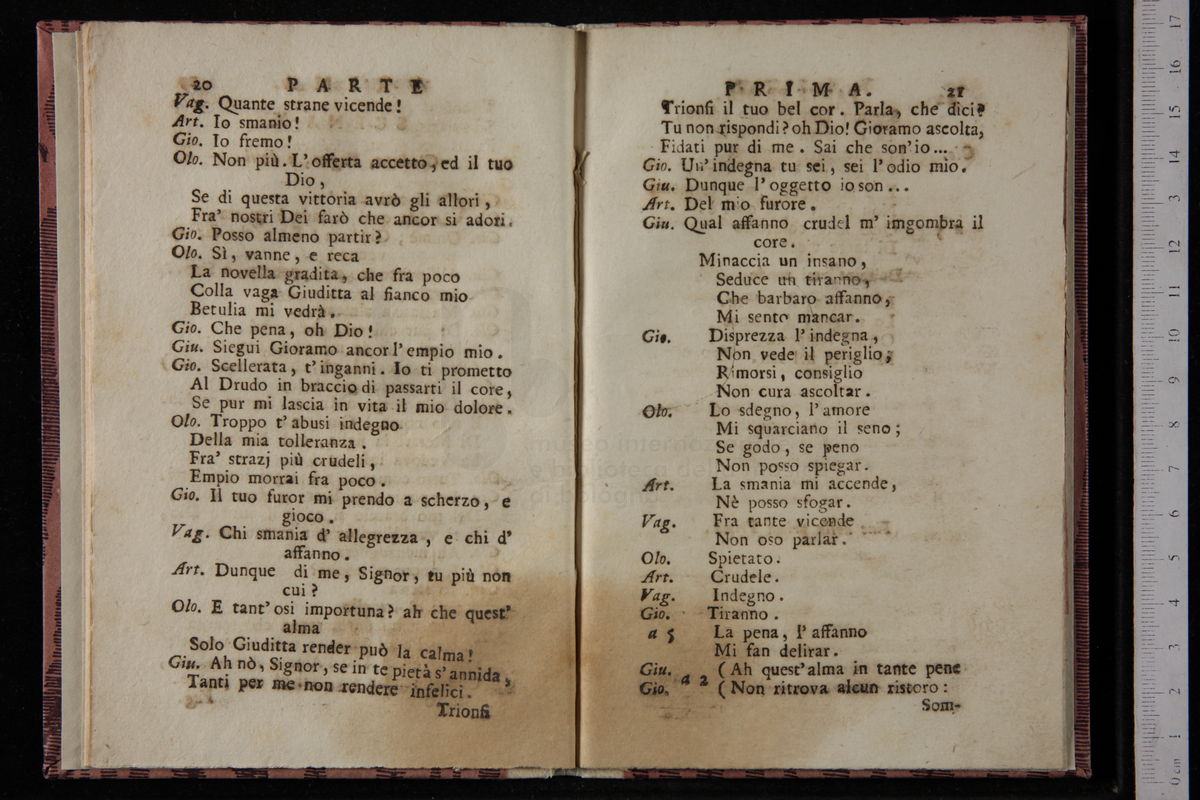 20 PARTE
Vag. Quante strane vicende!
Art. Io smanio!
Gio. Io fremo!
Olo. Non più. L'offerta accetto, ed il tuo
Dio,
Se di questa vittoria avrò gli allori,
Fra' nostri Dei farò che ancor si adori.
Gio. Posso almeno partir?
Olo. Sì, vanne, e reca
La novella gradita, che fra poco
Colla vaga Giuditta al fianco mio
Betulia mi vedrà.
Gio. Che pena, oh Dio!
Giu. Siegui Gioramo ancor l'empio mio.
Gio. Scellerata, t'inganni. Io ti prometto
Al Drudo in braccio di passarti il core,
Se pur mi lascia in vita il mio dolore.
Olo. Troppo t'abusi indegno
Della mia tolleranza.
Fra' strazj più crudeli,
Empio morrai fra poco.
Gio. Il tuo furor mi prendo a scherzo, e
gioco.
Vag. Chi smania d'allegrezza, e chi d'
affanno.
Art. Dunque di me, Signor, tu più non
cui?
Olo. E tant'osi importuna? ah che quest'
alma
Solo Giuditta render può la calma!
Giu. Ah nò, Signor, se in te pietà s'annida,
Tanti per me non rendere infelici.
Trionfi
PRIMA. 21
Trionfi il tuo bel cor. Parla, che dici?
Tu non rispondi? oh Dio! Gioramo ascolta,
Fidati pur di me. Sai che son'io...
Gio. Un'indegna tu sei, sei l'odio mio.
Giu. Dunque l'oggetto io son...
Art. Del mio furore.
Giu. Qual affanno crudel m'imgombra il
core.
Minaccia un insano,
Seduce un tiranno,
Che barbaro affanno,
Mi sento mancar.
Gio. Disprezza l'indegna,
Non vede il periglio;
Rimorsi, consiglio
Non cura ascoltar.
Olo. Lo sdegno, l'amore
Mi squarciano il seno;
Se godo, se peno
Non posso spiegar.
Art. La smania mi accende,
Nè posso sfogar.
Vag. Fra tante vicende
Non oso parlar.
Olo. Spietato.
Art. Crudele.
Vag. Indegno.
Gio. Tiranno.
a 5 La pena, l'affanno
Mi fan delirar.
Giu. a 2 (Ah quest'alma in tante pene
Gio. (Non ritrova alcun ristoro:
Som-